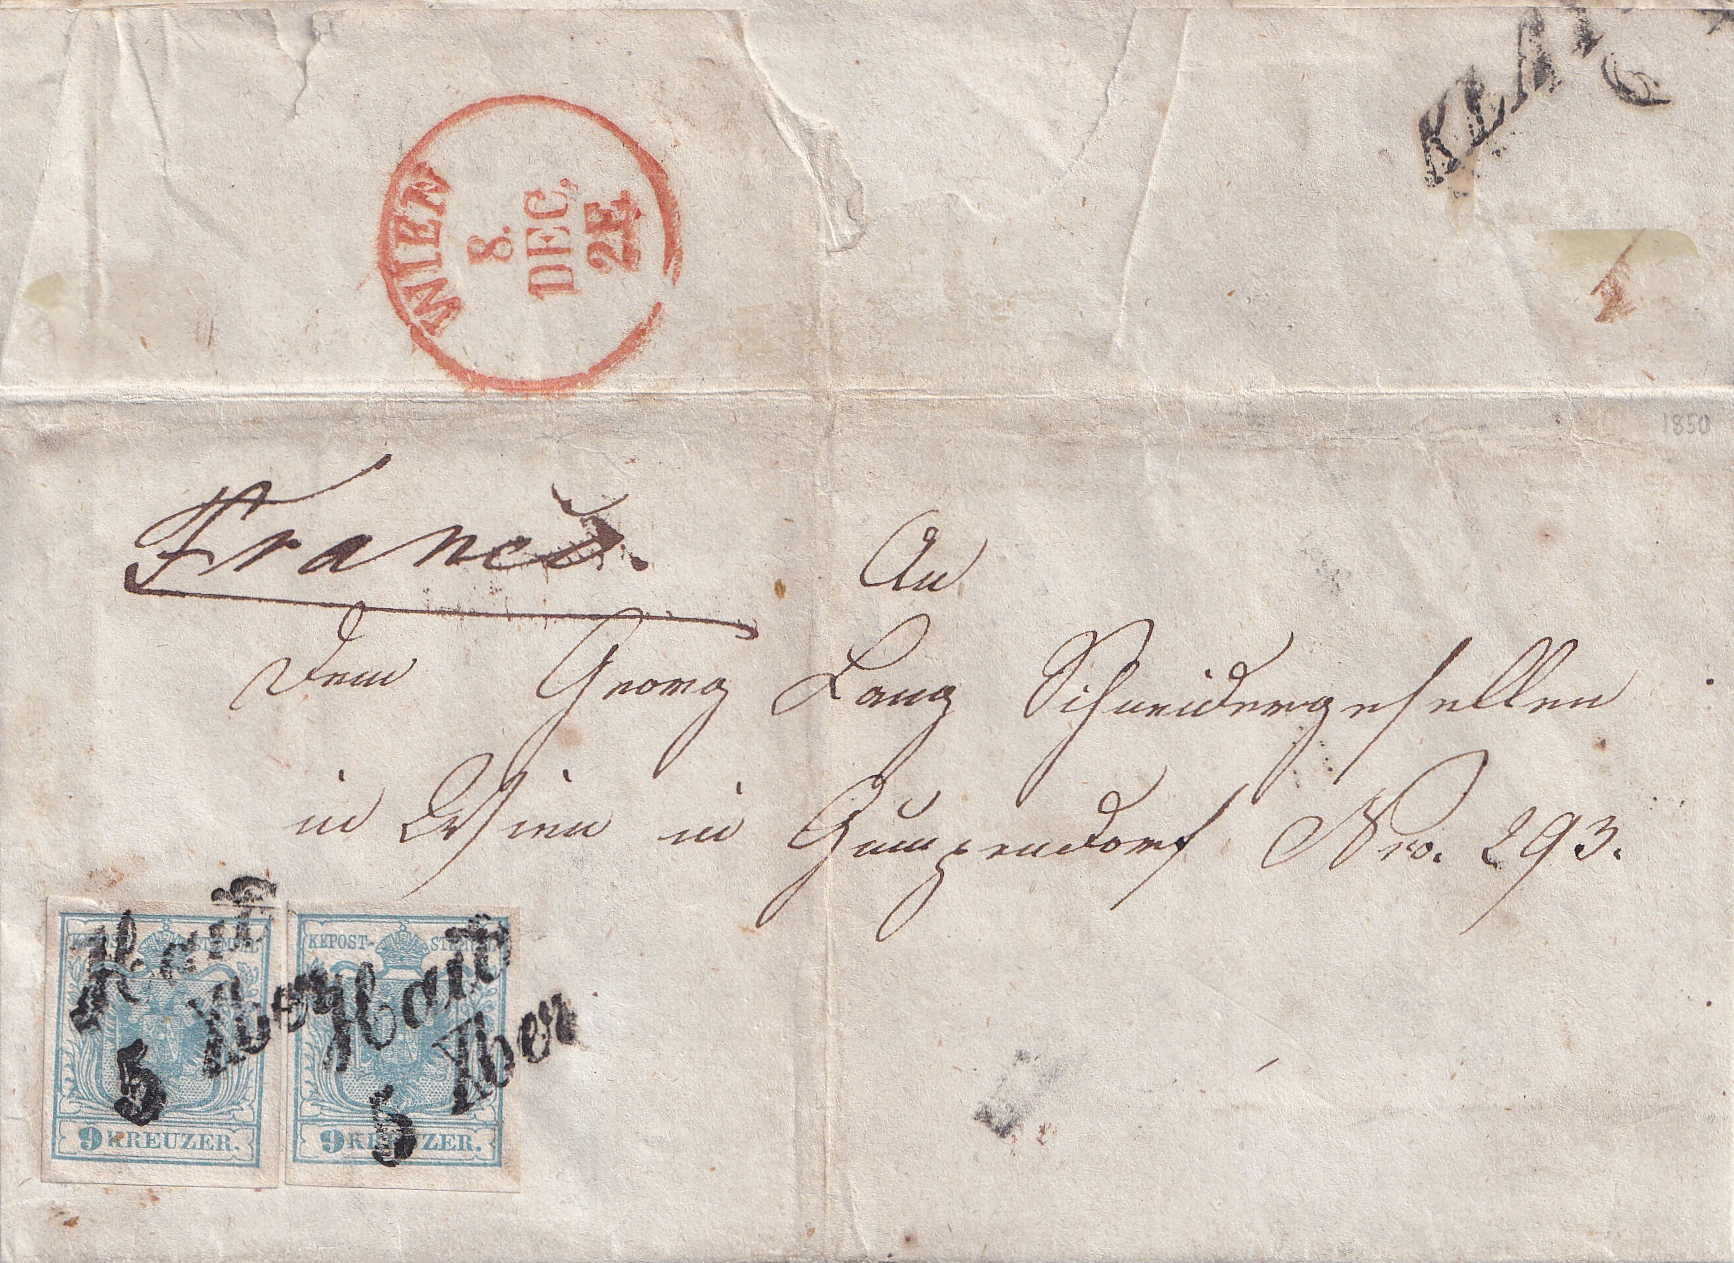 KLAT
WIEN
8.
DEC.
2E.
1850
Franco.
An
Dem Georg Lang Schneidergesellen
in Wien in Gumpendorf Nro. 293.
KKPOST-STEMPEL
9 KREUZER.
Haid
5 Xber
KKPOST-STEMPEL
9 KREUZER.
Haid
5 Xber